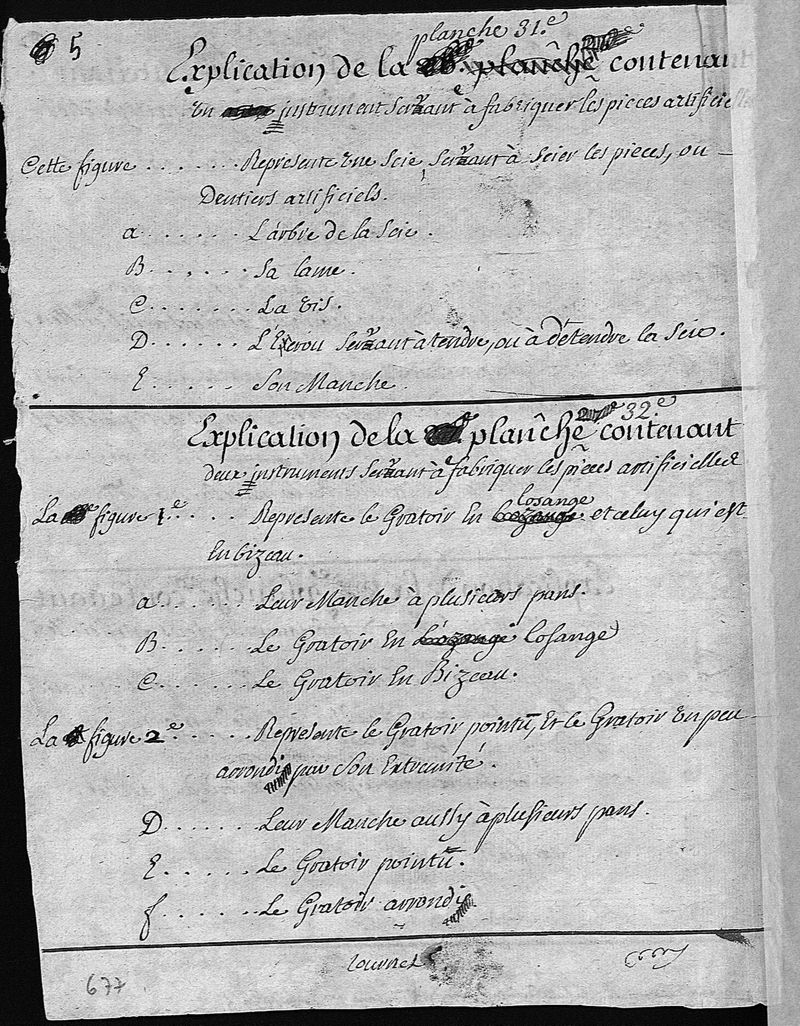 5
planche 31.e
Explication de la planche contenant
un instrument servant à fabriquer les pieces artificielle
Cette figure . . . . . . . Represente une scie, servant à scier les pieces, ou
Dentiers artificiels.
a . . . . . . L'arbre de la scie.
B . . . . . . Sa lame.
C . . . . . . . La vis.
D . . . . . . L'Ecrou servant à tendre, ou à détendre la scie.
E . . . . . Son Manche.
32.e
Explication de la planche contenant
deux instruments servant à fabriquer les pieces artificielles
La figure 1.e . . . . . Represente le Gratoir en losange et celuy qui est
En bizeau.
a . . . . . . Leur Manche à plusieurs pans.
B . . . . . . Le Gratoir en losange
C . . . . . . Le Gratoir En Bizeau.
La figure 2.e . . . . . Represente le Gratoir pointû, Et le Gratoir un peu
arrondi par son Extremité.
D . . . . . . Leur Manche aussy à plusieurs pans.
E . . . . . . Le Gratoir pointû.
f . . . . . . Le Gratoir arrondi.
tournez
677